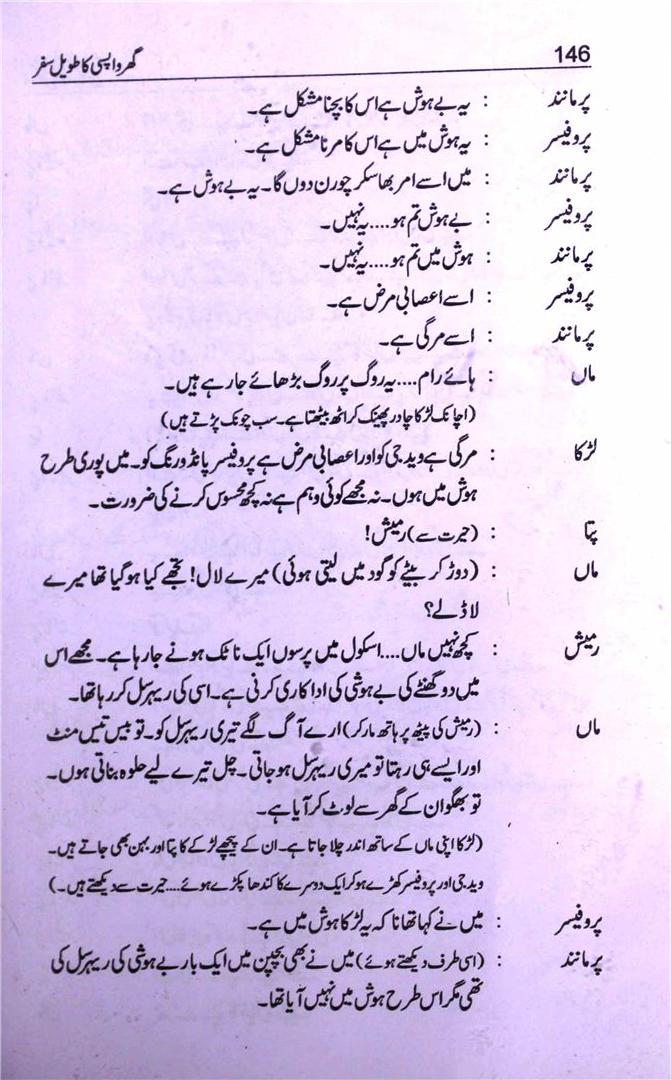 146 گھر واپسی کا طویل سفر
پرمانند : یہ بے ہوش ہے اس کا بچنا مشکل ہے۔
پروفیسر : یہ ہوش میں ہے اس کا مرنا مشکل ہے۔
پرمانند : میں اسے امر بھاسکر چورن دوں گا۔ یہ بے ہوش ہے۔
پروفیسر : بے ہوش تم ہو....یہ نہیں۔
پرمانند : ہوش میں تم ہو....یہ نہیں۔
پروفیسر : اسے اعصابی مرض ہے۔
پرمانند : اسے مرگی ہے۔
ماں : ہائے رام....یہ روگ پر روگ بڑھائے جا رہے ہیں۔
(اچانک لڑکا چادر پھینک کر اٹھ بیٹھتا ہے۔ سب چونک پڑتے ہیں)
لڑکا : مرگی ہے ویدجی کو اور اعصابی مرض ہے پروفیسر پانڈورنگ کو۔ میں پوری طرح
ہوش میں ہوں۔ نہ مجھے کوئی وہم ہے نہ کچھ محسوس کرنے کی ضرورت۔
پتا : (حیرت سے) رمیش!
ماں : (دوڑ کر بیٹے کو گود میں لیتی ہوئی) میرے لال! تجھے کیا ہو گیا تھا میرے
لاڈلے؟
رمیش : کچھ نہیں ماں....اسکول میں پرسوں ایک ناٹک ہونے جا رہا ہے۔ مجھے اس
میں دو گھنٹے کی بے ہوشی کی اداکاری کرنی ہے۔ اسی کی ریہرسل کر رہا تھا۔
ماں : (رمیش کی پیٹھ پر ہاتھ مار کر) ارے آگ لگے تیری ریہرسل کو۔ تو بیس تیس منٹ
اور ایسے ہی رہتا تو میری ریہرسل ہو جاتی۔ چل تیرے لیے حلوہ بناتی ہوں۔
تو بھگوان کے گھر سے لوٹ کر آیا ہے۔
(لڑکا اپنی ماں کے ساتھ اندر چلا جاتا ہے۔ ان کے پیچھے لڑکے کا پتا اور بہن بھی جاتے ہیں۔
ویدجی اور پروفیسر کھڑے ہو کر ایک دوسرے کا کندھا پکڑے ہوئے....حیرت سے دیکھتے ہیں۔)
پروفیسر : میں نے کہا تھا نا کہ یہ لڑکا ہوش میں ہے۔
پرمانند : (اسی طرف دیکھتے ہوئے) میں نے بھی بچپن میں ایک بار بے ہوشی کی ریہرسل کی
تھی مگر اس طرح ہوش میں نہیں آیا تھا۔